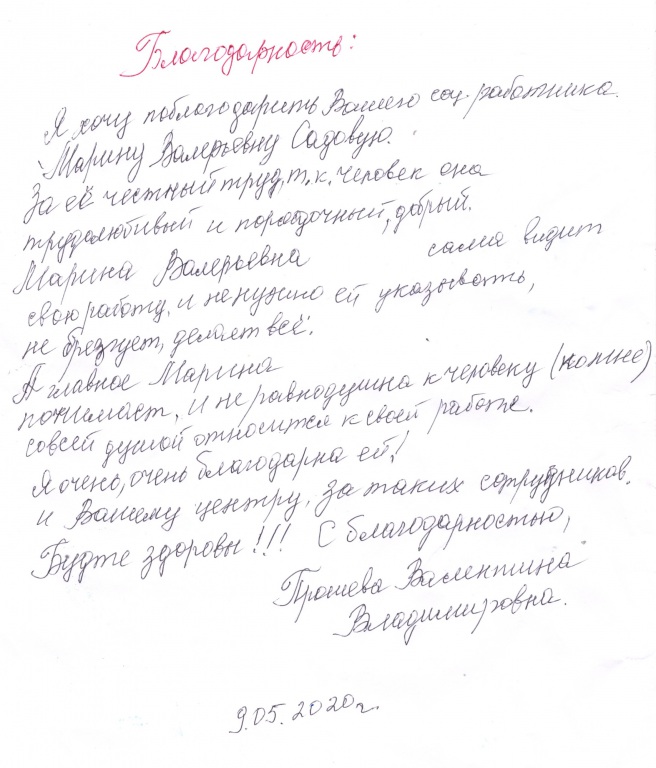 Благодарность:
Я хочу поблагодарить Вашего соц. работника.
Марину Валерьевну Садовую.
За её честный труд, т.к. человек она
трудолюбивый и порядочный, добрый.
Марина Валерьевна сама видит
свою работу, и ненужно ей указывать,
не брезгует, делает всё.
А главное Марина
понимает, и не равнодушна к человеку (ко мне)
совсей душой относится к своей работе.
Я очень, очень благодарна ей!
и Вашему центру, за таких сотрудников.
Будте здоровы!!! С благодарностью,
Валентина
Владимировна.
9.05.2020г.